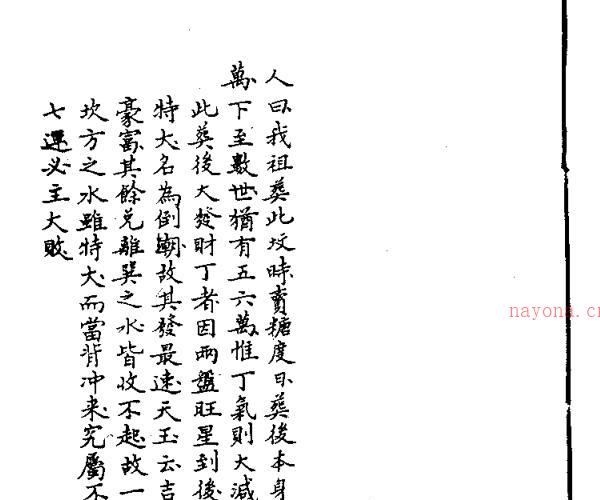 人曰我祖葬此坟時賣糖度日葬後本身
萬下至數世猶有五六萬惟丁氣則大減
此葬後大發財丁者因兩盤旺星到後
特大名為倒潮故其發最速天玉云吉
豪富其餘兌離巽之水皆收不起故一
坎方之水雖特大而當背冲来究屬不
七運必主大敗
nayona.cn